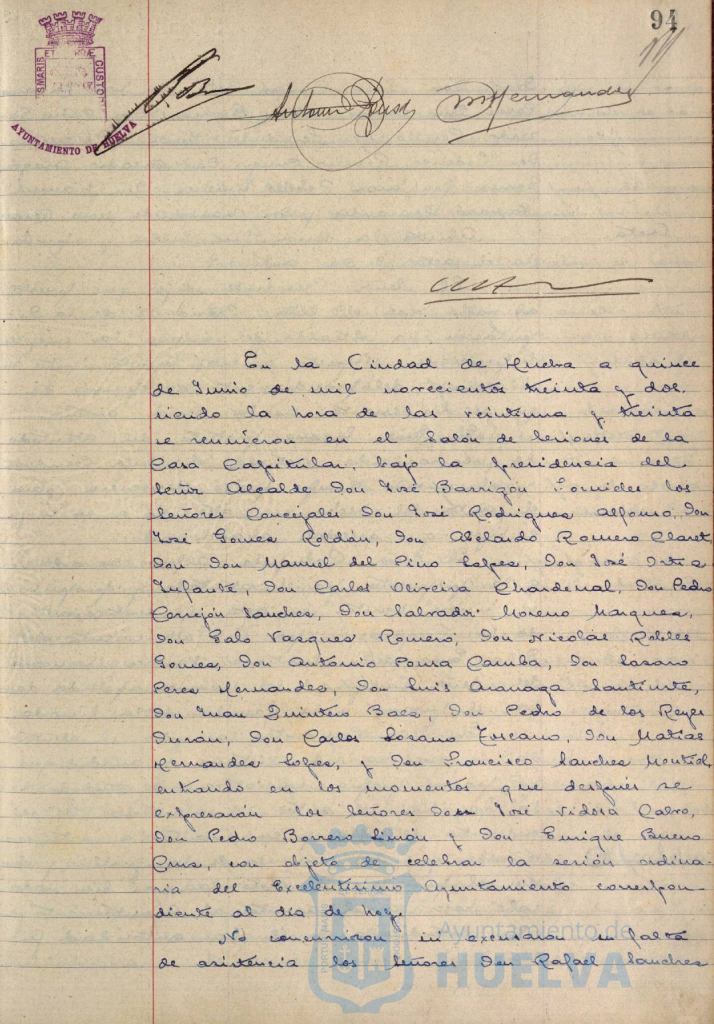 94
AYUNTAMIENTO DE HUELVA
Antonio
M Hernandez
En la Ciudad de Huelva a quince
de Junio de mil novecientos treinta y dos,
siendo la hora de las veintiuna y treinta
se reunieron en el Salón de Sesiones de la
Casa Capitular, bajo la presidencia del
Señor Alcalde Don José Barrigón Fornieles los
Señores Concejales Don José Rodriguez Alfonso, Don
José Gomez Roldán, Don Abelardo Romero Claret,
Don Don Manuel del Pino Lopez, Don José Ortiz
Infante, Don Carlos Oliveira Chardenal, Don Pedro
Cerrejón Sanchez, Don Salvador Moreno Marquez,
Don Galo Vazquez Romero; Don Nicolás Robles
Gomez, Don Antonio Pousa Camba, Don Lazaro
Perez Hernandez, Don Luis Aranaga Santiurte,
Don Juan Quintero Baez, Don Pedro de los Reyes
Durán, Don Carlos Lozano Toscano, Don Matías
Hernandez Lopez, y Don Francisco Sanchez Montiel,
entrando en los momentos que después se
expresarán los Señores Don José Vidosa Calvo,
Don Pedro Borrero Limón y Don Enrique Bueno
Cruz, con objeto de celebrar la sesión ordina-
ria del Excelentísimo Ayuntamiento correspon-
diente al día de hoy.
No concurrieron ni excusaron su falta
de asistencia los Señores Don Rafael Sanchez
Ayuntamiento de
HUELVA